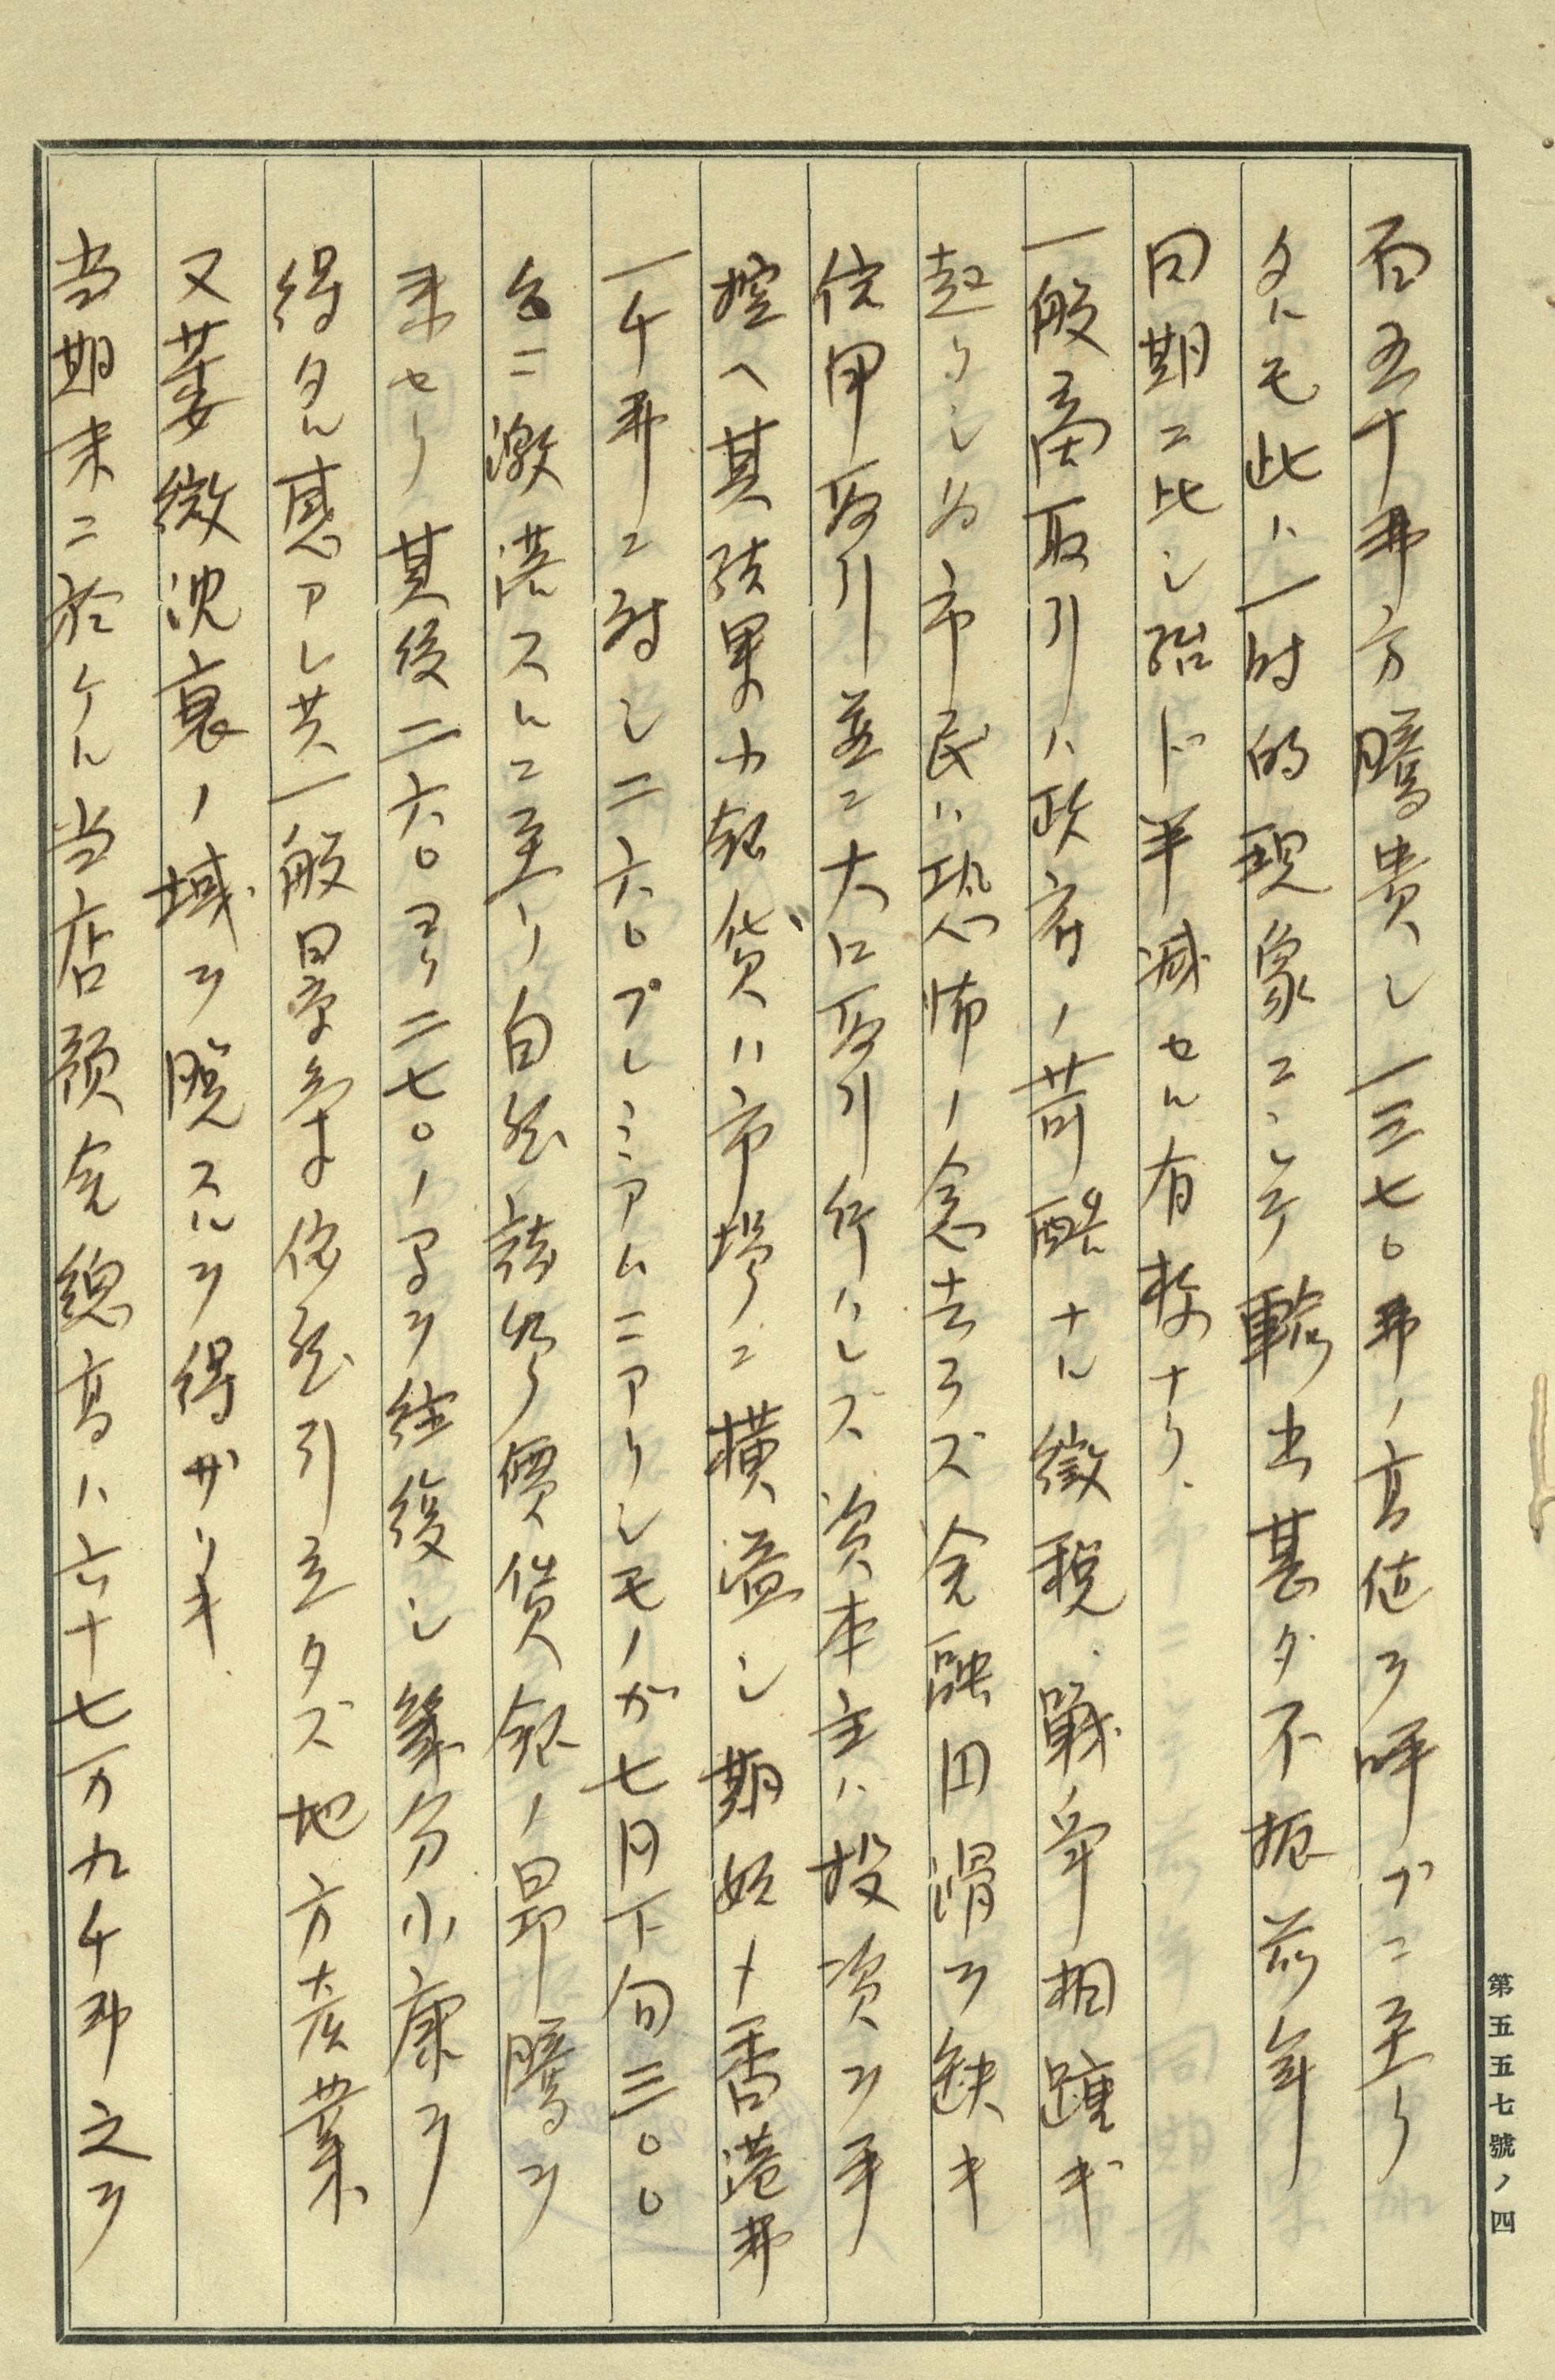 百五十弗方騰貴シ一三七〇弗ノ高値ヲ呼ブニ至リ
タルモ此ハ一時的現象ニシテ輸出甚ダ不振前年
同期ニ比シ殆ド半減セル有様ナリ、
一般商取引ハ政府ノ苛酷ナル徴税、戦争相踵ギ
起リシ為市民ハ恐怖ノ念去ラズ金融円滑ヲ缺キ
信用取引並ニ大口取引行ハレズ資本主ハ投資ヲ手
控ヘ其結果小銀貨ハ市場ニ横溢シ期始メ香港弗
一千弗ニ対シ二六〇プレミアムニアリシモノガ七月下旬三〇〇
台ニ激落スルニ至リ自然諸物價貨銀ノ昂騰ヲ
来セリ其後二六〇ヨリ二七〇ノ間ヲ往復シ幾分小康ヲ
得タル感アレ共一般景気依然引立タズ地方産業
又萎微沈衰ノ域ヲ脱スルヲ得ザリキ、
当期末ニ於ケル当店預金總高ハ六十七万九千弗之ヲ
第五五七號ノ四